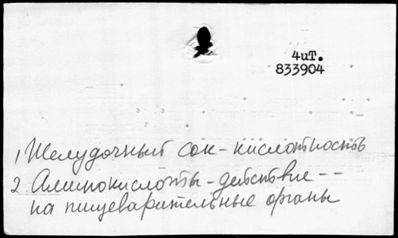 4иТ.
833904
1 Желудочный сок - кислотность
2 Аминокислоты - действие --
на пищеварительные органы